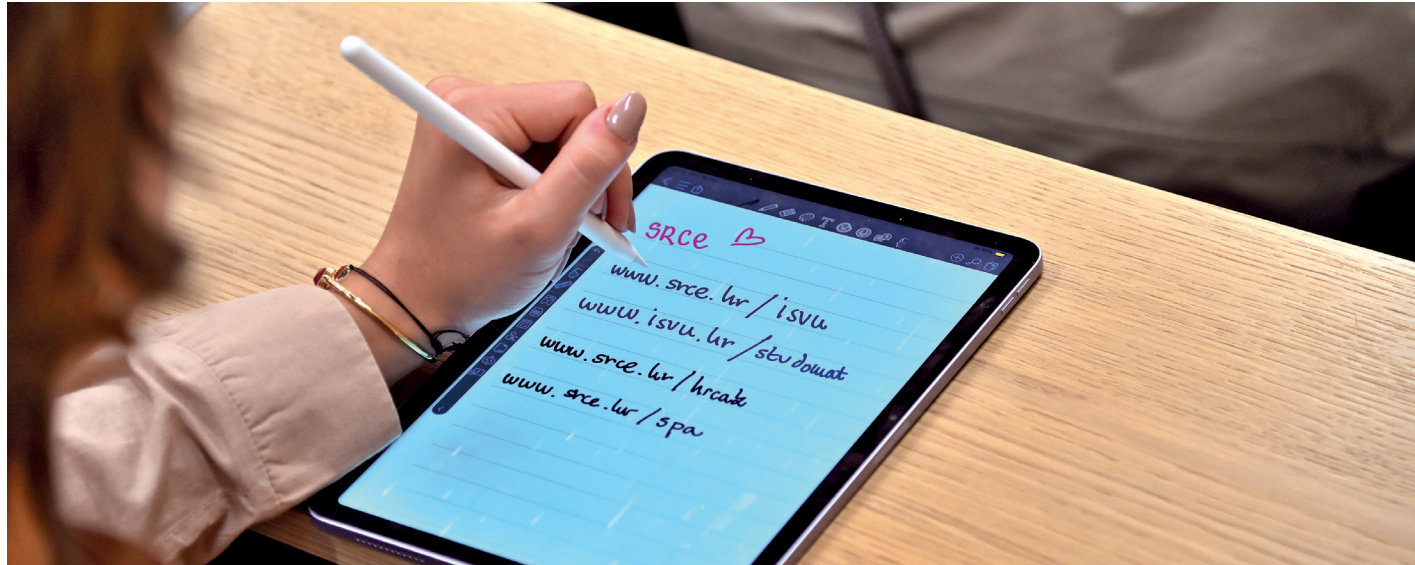 SRCe ♡
www.srce.hr/isvu
www.isvu.hr/studomat
www.srce.hr/hrcak
www.srce.hr/spa